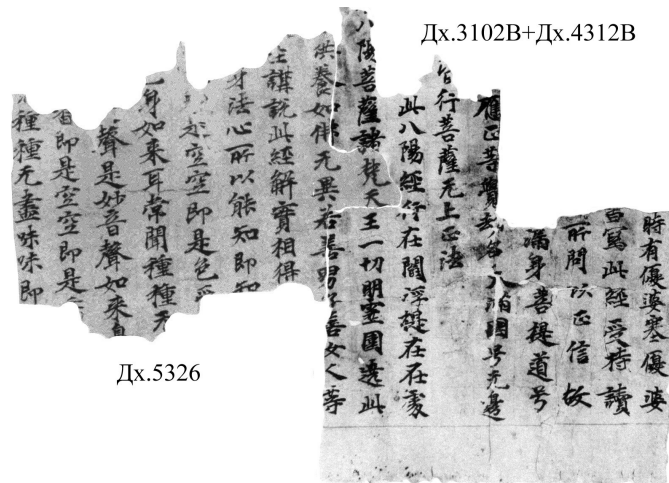 Дх.3102B+Дх.4312B
時有優婆塞優婆
寫此經受持讀
所問以正信故
滿身菩提道号
應正等覺劫名大滿國号无邊
皆行菩薩无上正法
此八陽經行在閻浮提在在處
八陽菩薩諸梵天王一切明靈圍遶此
供養如佛无異若善男子善女人等
生講說此經解實相得
身法心所以能知即知
空空即是色
身如来耳常聞種種无
聲是妙音聲如来
即是空空即是
種種无盡味味即
Дх.5326